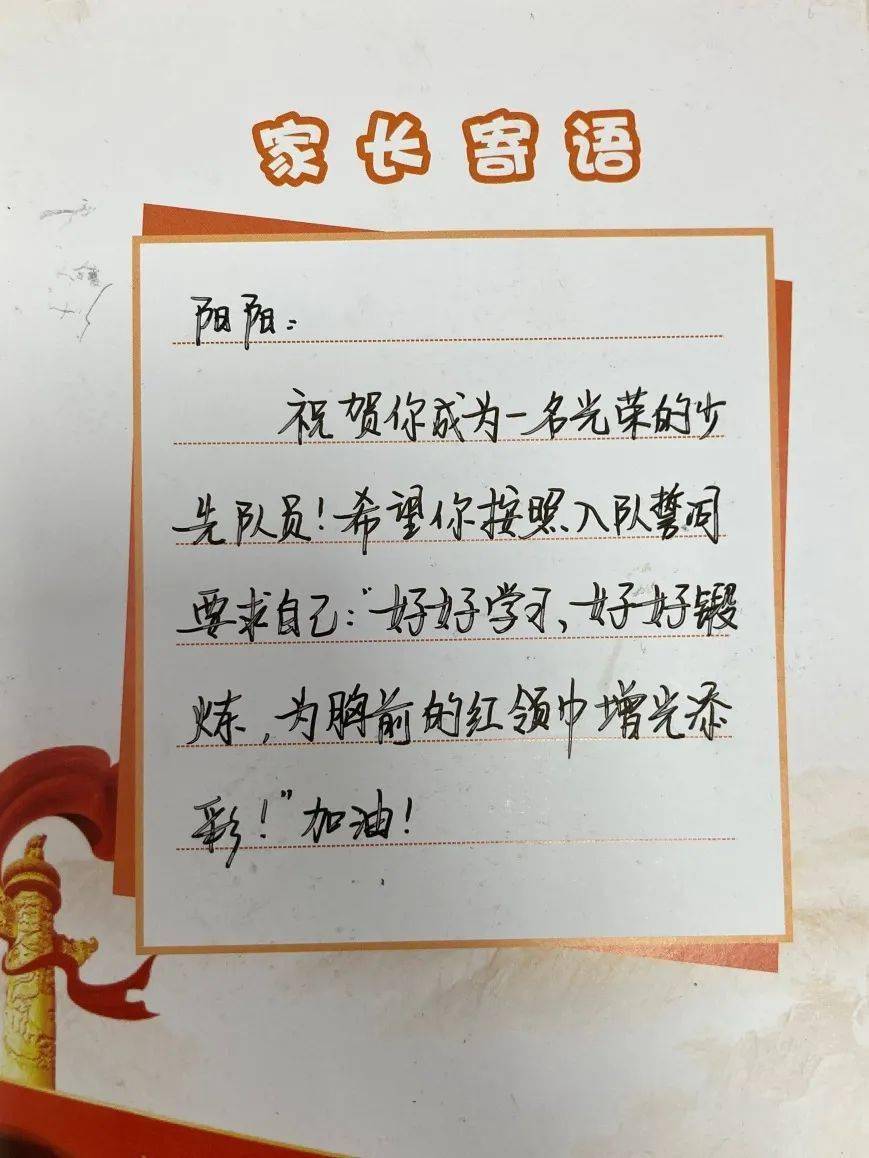 家长寄语
阳阳：
祝贺你成为一名光荣的少
先队员！希望你按照入队誓词
要求自己：“好好学习、好好锻
炼，为胸前的红领巾增光添
彩！”加油！